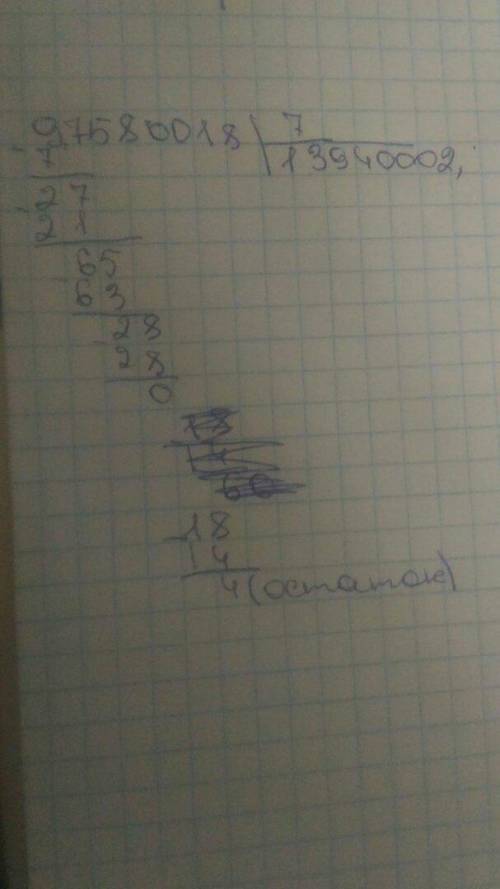 97580018 7
7 13940002,
27
21
65
63
28
28
0
18
14
4 (остаток)